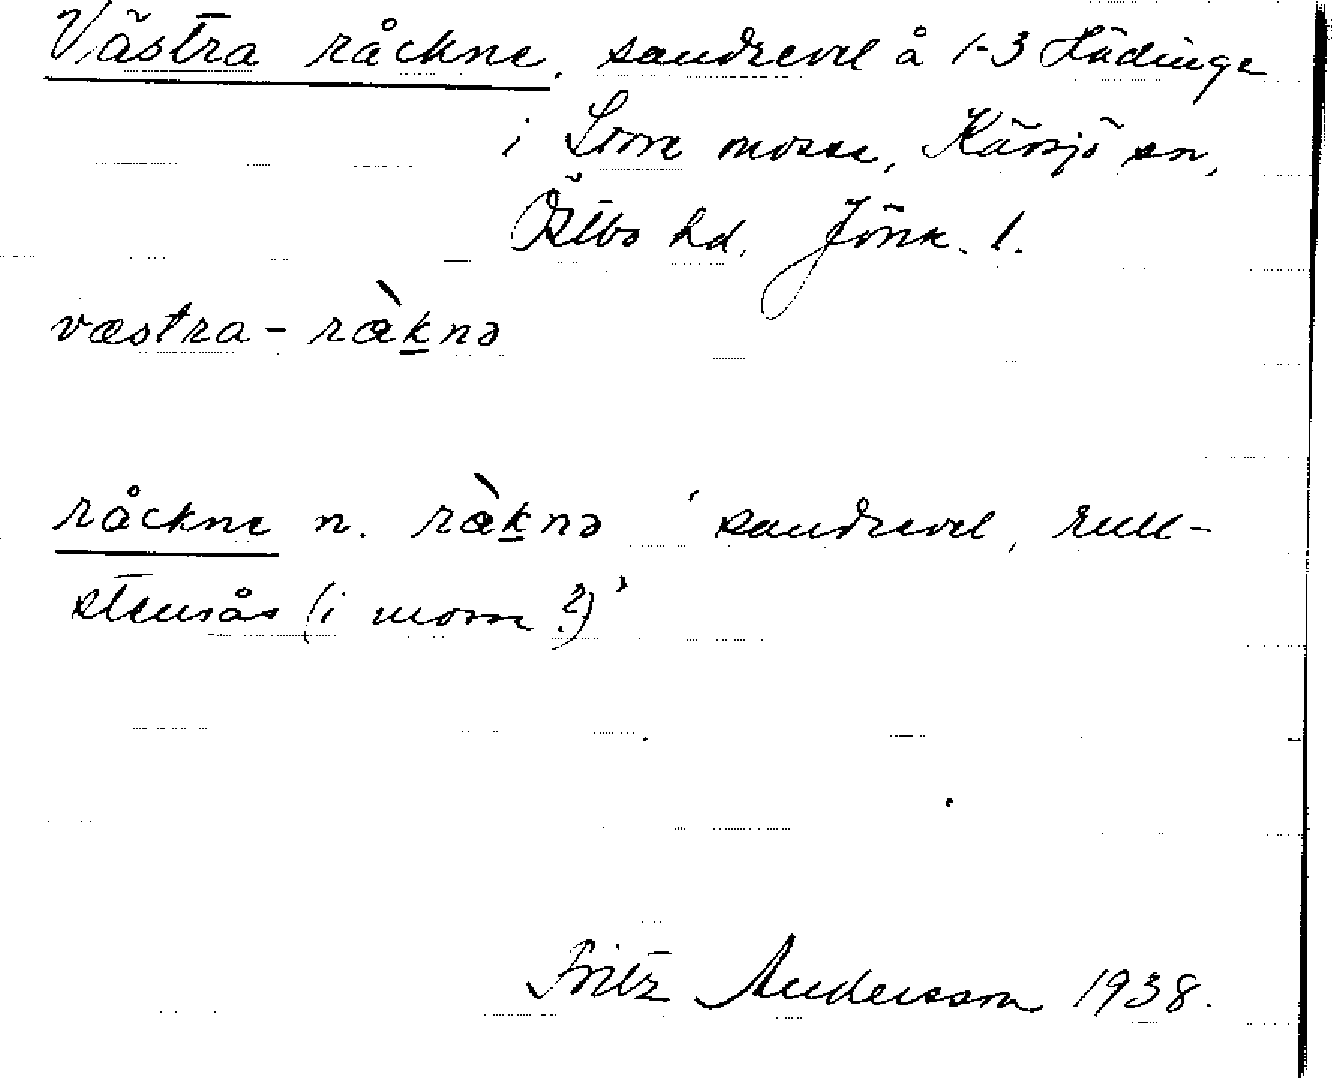 Västra råckne, sandrevel å 1-3 Hädinge
i Store mosse, Kävsjö sn,
Östbo hd. Jönk. l.
væstra-ràknə
råckne n. ràknə 'sandrevel, rull-
stensås (i mosse?)'
Fritz Andersson 1938.